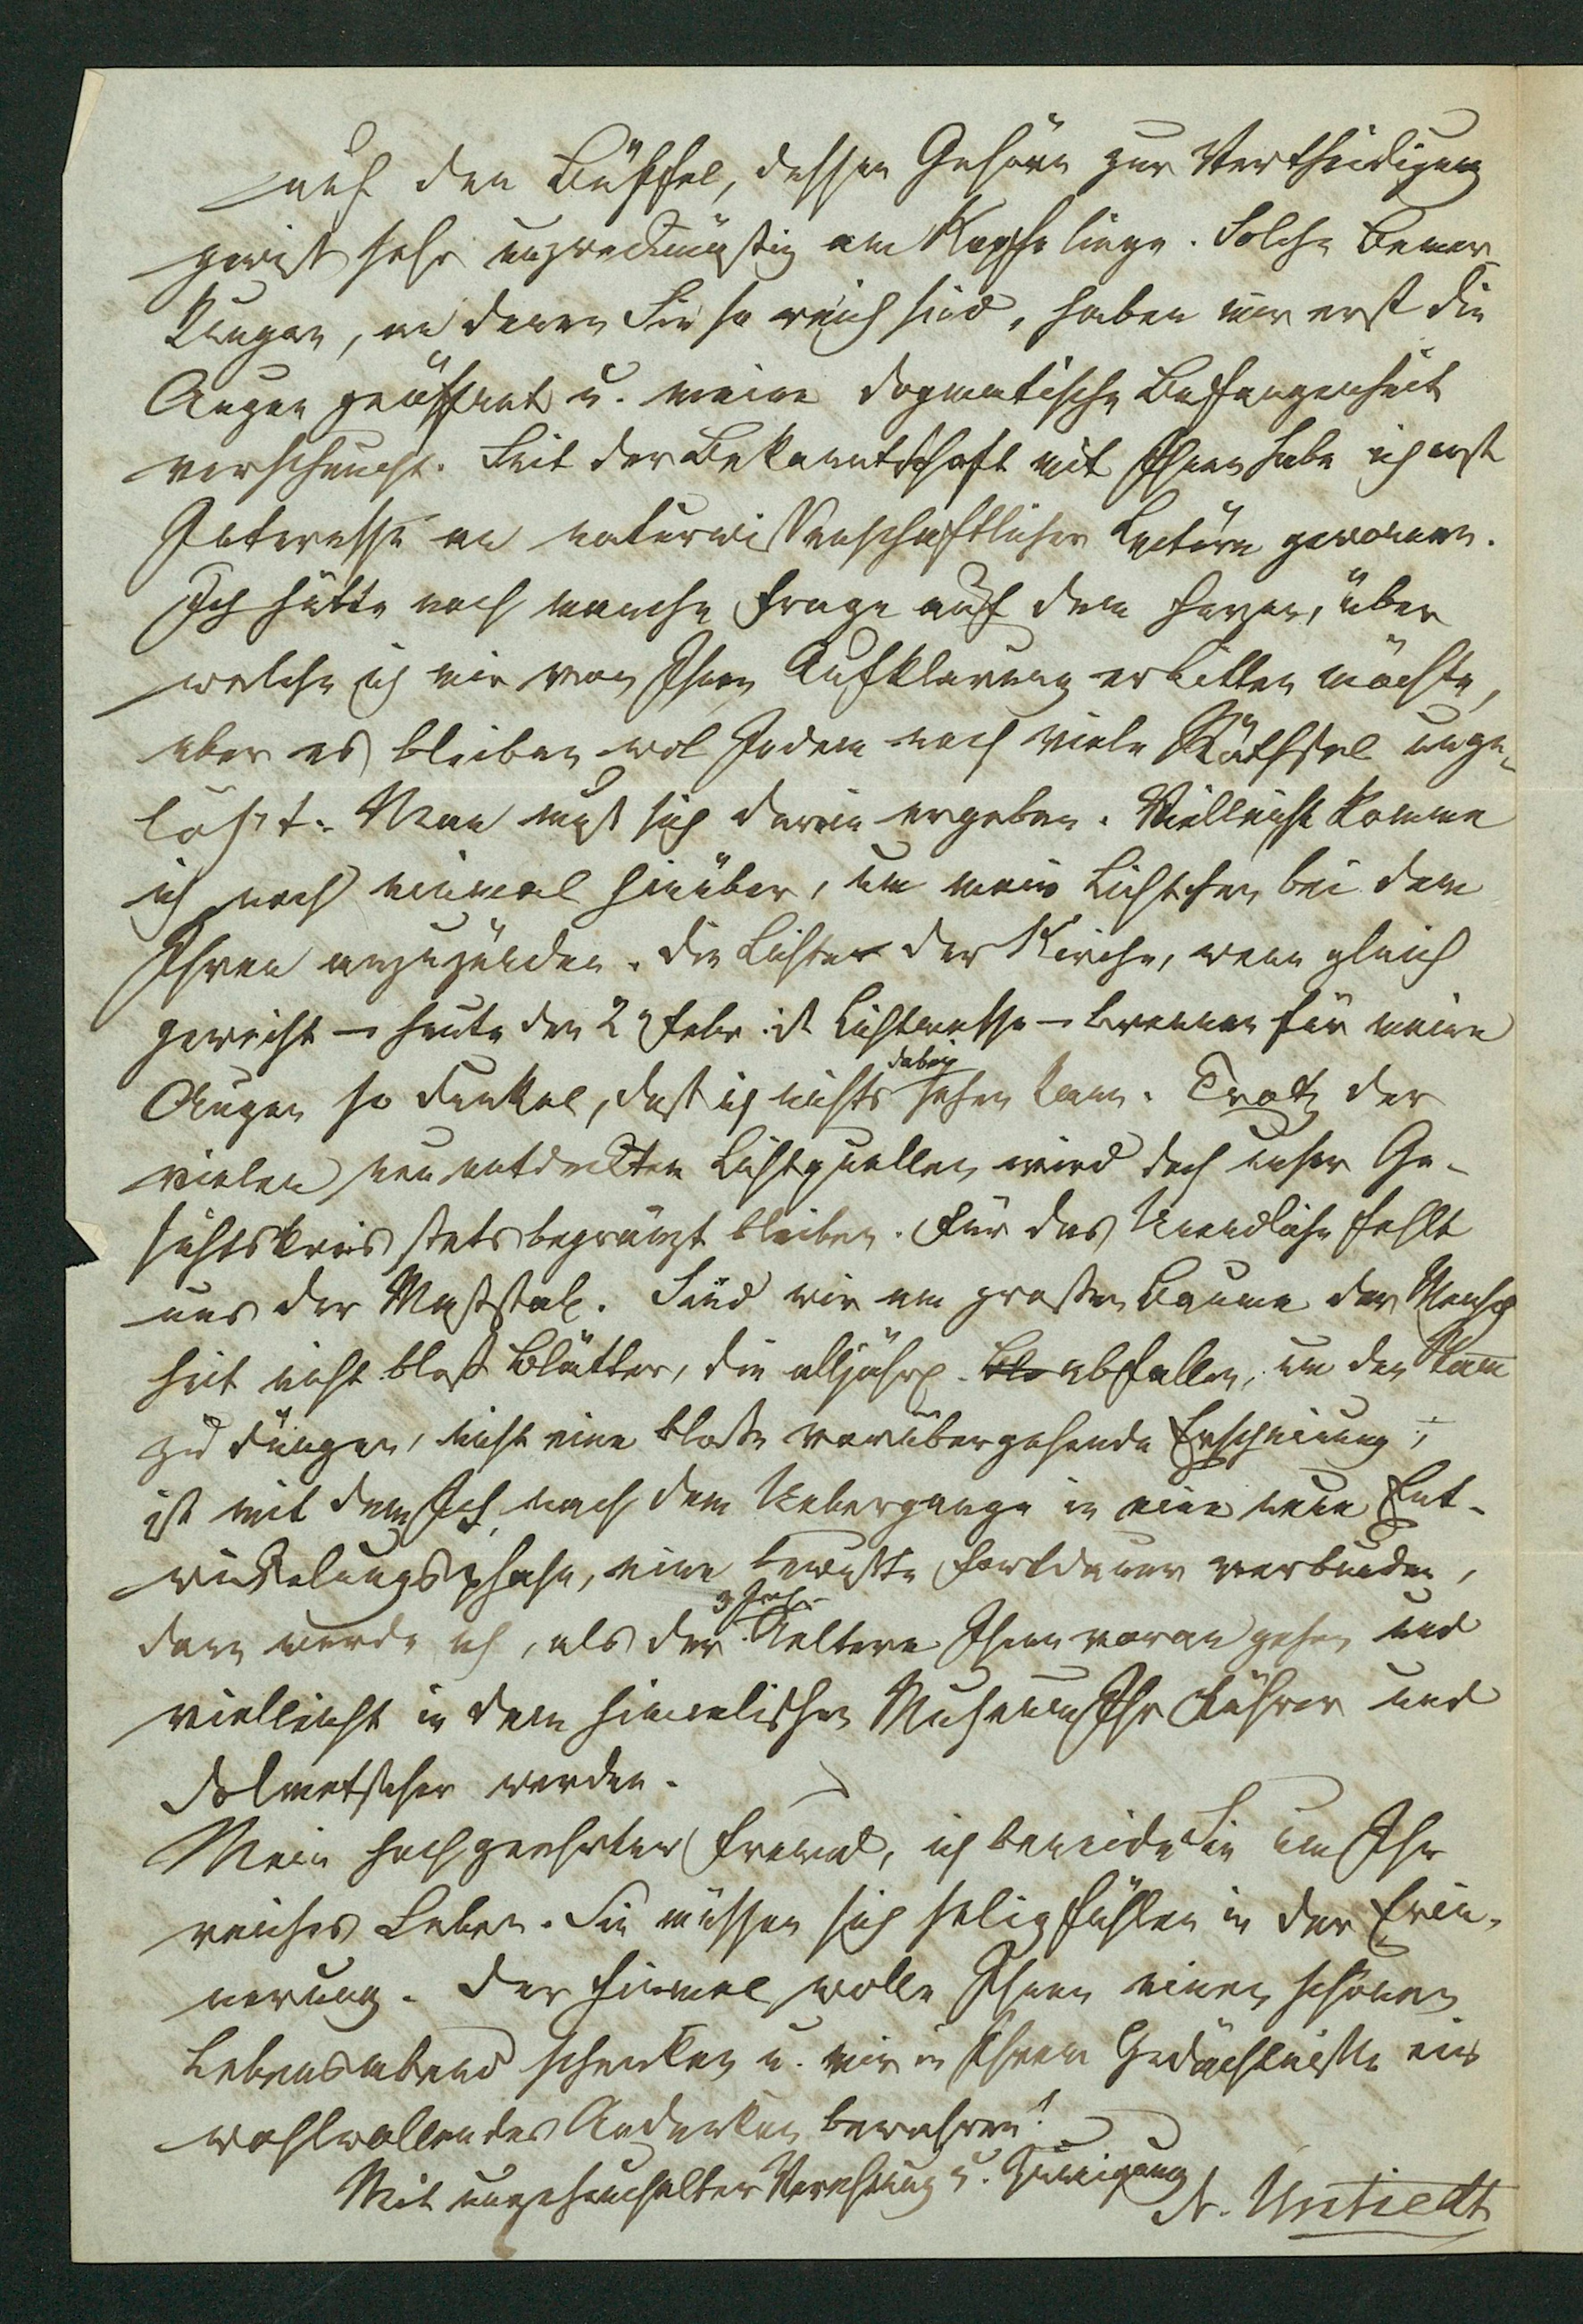 auf den Büffel, dessen Gehörn zur Vertheidigung
gewiß sehr unzweckmäßig am Kopfe liege. Solche Bemer-
kungen, an denen Sie so reich sind, haben mir erst die
Augen geöffnet u. meine dogmatische Befangenheit
verscheucht. Seit der Bekanntschaft mit Ihnen habe ich erst
Interesse an naturwissenschaftlicher Lectüre gewonnen.
Ich hätte noch manche Frage auf dem Herzen, über
welche ich mir von Ihnen Aufklärung erbitten möchte,
aber es bleiben wol Jedem noch viele Räthsel unge-
löst. Man muß sich darein ergeben. Vielleicht komme
ich noch einmal hinüber, um mein Lichtchen bei dem
Ihren anzuzünden. Die Lichter der Kirche, wenn gleich
geweiht – heute den 2 Febr. ist Lichtmesse – brennen für meine
Augen so dunkel, daß ich nichts dabei sehen kann. Trotz der
vielen neu entdeckten Lichtquellen wird doch unser Ge-
sichtskreis stets begränzt bleiben. Für das Unendliche fehlt
uns der Maßstab. Sind wir am großen Baume der Mensch
heit nicht bloß Blätter, die alljährl. abfallen, um den Stamm
zu düngen, nicht eine bloße vorübergehende Erscheinung,
ist mit dem Ich nach dem Uebergange in eine neue Ent-
wickelungsphase, eine bewußte Fortdauer verbunden,
dann werde ich, als der Aeltere Ihnen voran gehen und
vielleicht in dem himmlischen Museum Ihr Führer und
Dolmetscher werden.
Mein hochgeehrter Freund, ich beneide Sie um Ihr
reiches Leben. Sie müssen sich selig fühlen in der Erin-
nerung. Der Himmel wolle Ihnen einen schönen
Lebensabend schenken u. mir in Ihrem Gedächtnisse ein
wohlwollendes Andenken bewahren!
Mit ungeheuchelter Verehrung u. Zuneigung
A. Untiedt